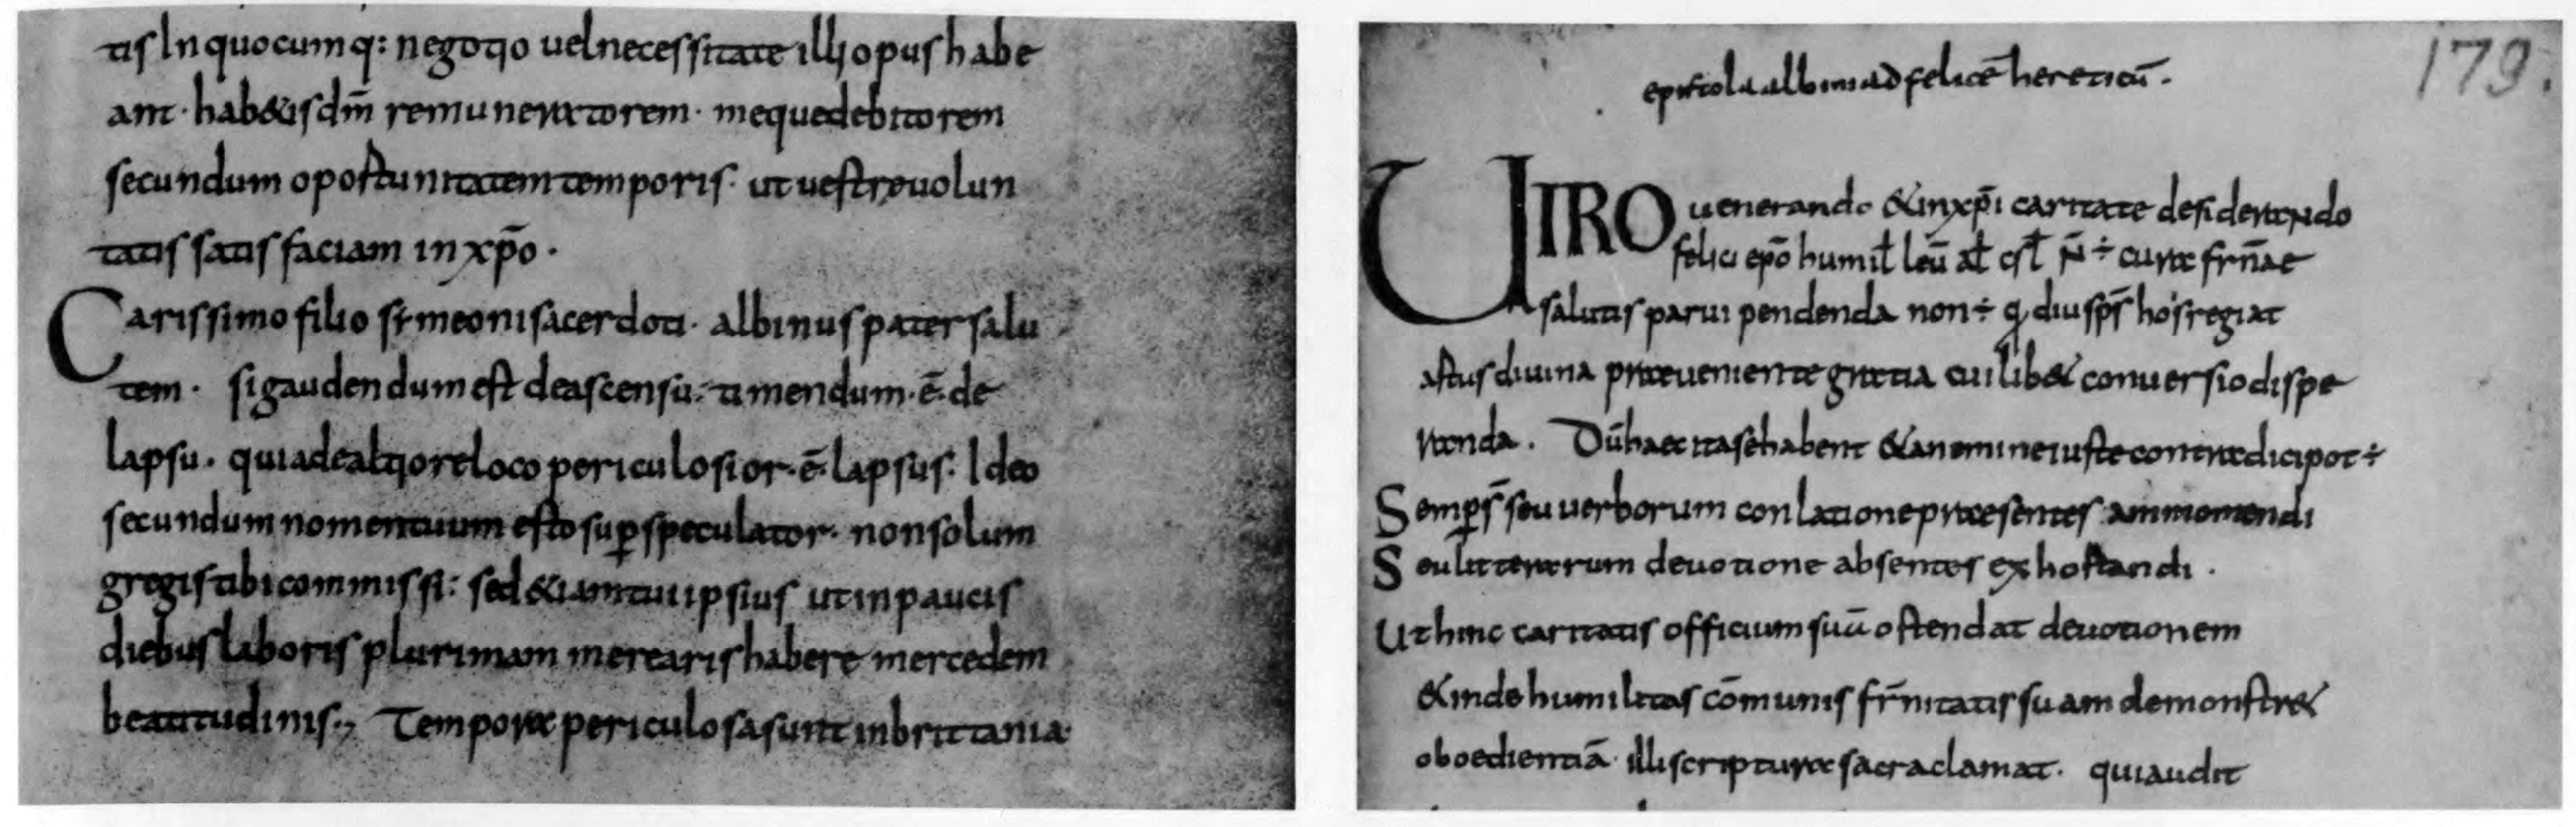 tis In quocumq: negotio uel necessitate illi opus habe
ant · hab&is dm̄ remuneratorem · meque debitorem
secundum oportunitatem temporis · ut uestre uolun
tatis satisfaciam in xp̄o ·
Carissimo filio symeoni sacerdoti · albinus pater salu
tem · si gaudendum est de ascensu: timendum · ē · de
lapsu · quia de altiore loco periculosior · ē · lapsus: Ideo
secundum nomen tuum esto sup speculator · non solum
gregis tibi commissi: sed &iam tui ipsius ut in paucis
diebus laboris plurimam merearis habere mercedem
beatitudinis ·, Tempora periculosa sunt in brittania ·
179.
epistola albini ad felicē hereticū ·
UIRO uenerando & in xp̄i caritate desiderando
felici ep̄o humil leū al csl n̄ ÷ cura fr̄nae
salutis parui pendenda non ÷ q diu sp̄s hos regi at
artus diuina praeueniente gratia cuilib& conuersio dispe
randa . Dū haec ita se habent & a nemine iuste contradici pot ÷
Semp̄s seu uerborum conlatione praesentes ammonendi
Seu litterarum deuotione absentes exhortandi .
Ut hinc caritatis officium suū ostendat deuotionem
& inde humilitas cōmunis fr̄nitatis suam demonstr&
oboedientiā · illi scriptura sacra clamat · qui audit